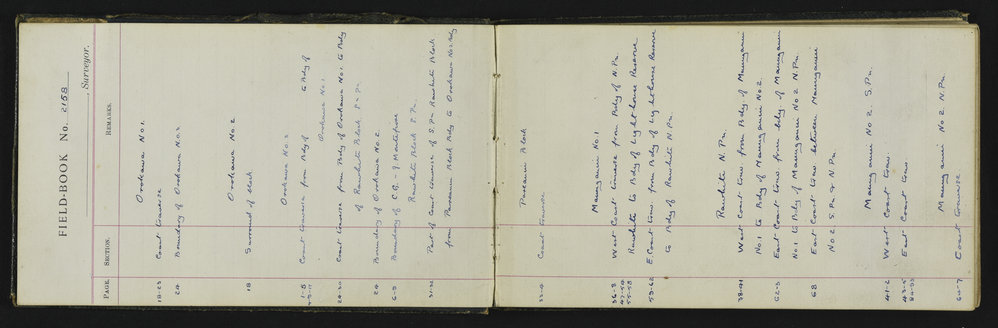 FIELD-BOOK No. 2158
, Surveyor.
PAGE. SECTION. REMARKS.
Orokawa No 1.
18-23 Coast traverse
24 Boundary of Orokawa No. 2
Orokawa No 2
18 Surround of Block
Orokawa No. 3
1-5 Coast traverse from Bdy of to Bdy of
Orokawa No 1
24-30 Coast traverse from Bdy of Orokawa No. 1. to Bdy
of Rawhiti Block. S. Pn.
24 Boundary of Orokawa No 2.
6-8 Boundary of C.B. - 9 Manterfiore
Rawhiti Block S. Pn.
31-32 Part of Coast traverse of S. Pn Rawhiti Block
from Parekura Block Bdy to Orokawa No 3 Bdy
Parekura Block
33-4 Coast Traverse
Maungarui No 1
36-8 West Coast traverse from Bdy of N. Pn.
47-54 Rawhiti to Bdy of Light house Reserve
55-58
58-62 E. Coast trav. from Bdy of Lighthouse Reserve
to Bdy of Rawhiti N. Pn.
Rawhiti N. Pn.
38-41 West Coast trav from Bdy of Maungarui
No. 1 to Bdy of Maungarui No 2.
62-3 East Coast trav from bdy of Maungarui
No. 1 to Bdy of Maungarui No 2 N. Pn.
68 East Coast trav. between Maungarui
No 2 S. Pn & N Pn.
Maungarui No 2. S. Pn.
41-2 West Coast trav.
43-5 East Coast trav
Maungarui No 2. N. Pn.
64-7 Coast traverse